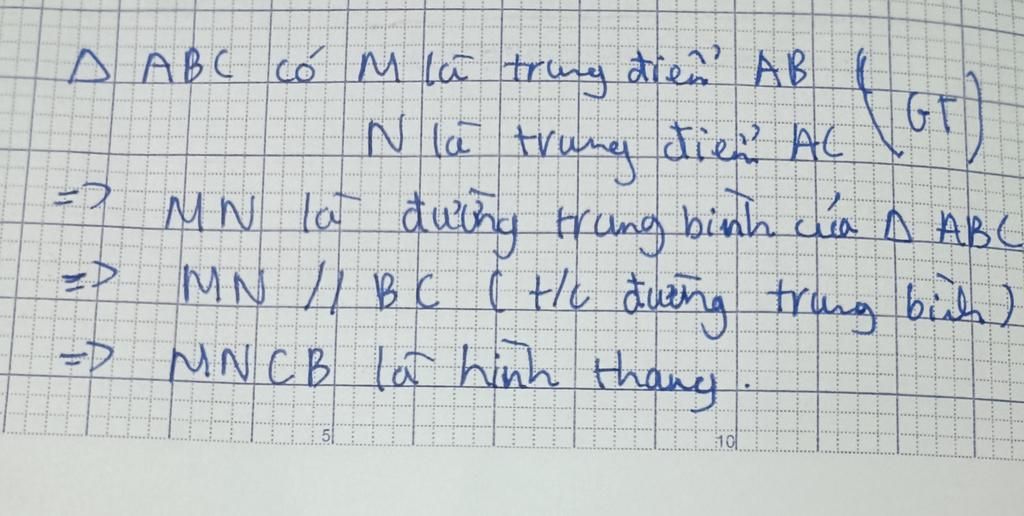 Δ ABC có M là trung điểm AB (GT)
N là trung điểm AC
=> MN là đường trung bình của Δ ABC
=> MN // BC ( t/c đường trung bình )
=> MNCB là hình thang .
5 10